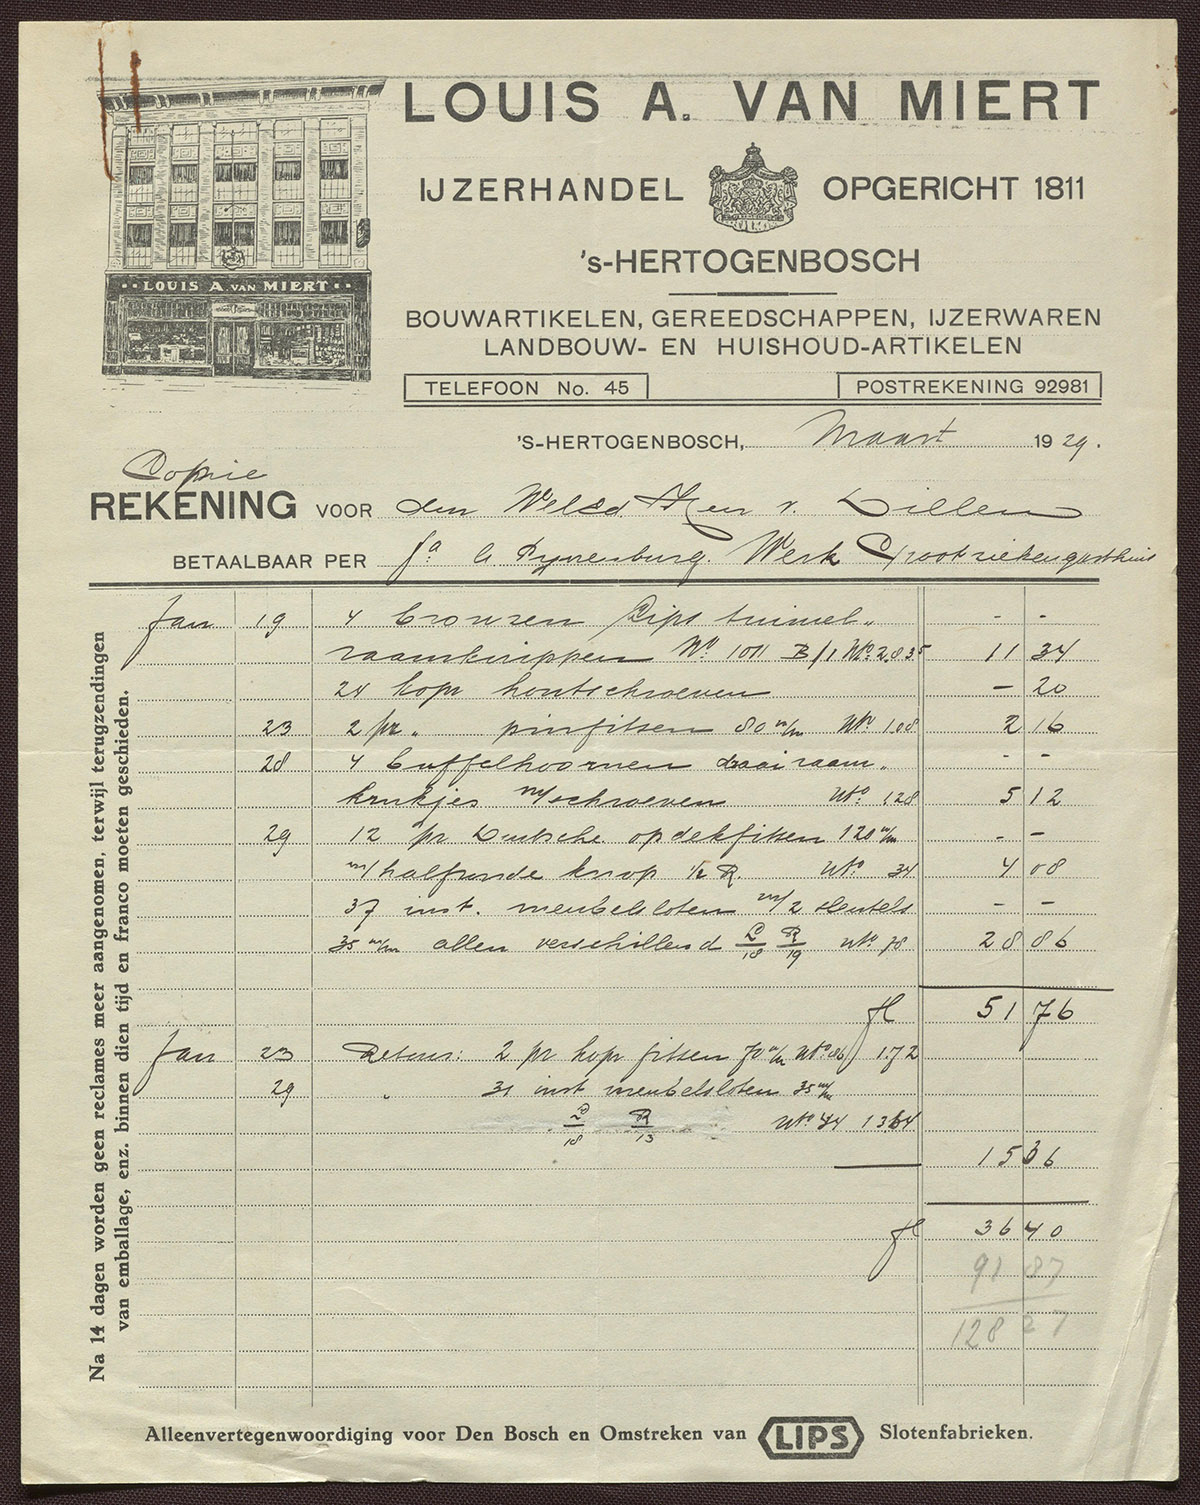 LOUIS A. VAN MIERT
IJZERHANDEL OPGERICHT 1811
's-HERTOGENBOSCH
·· LOUIS A. VAN MIERT ··
BOUWARTIKELEN, GEREEDSCHAPPEN, IJZERWAREN
LANDBOUW- EN HUISHOUD-ARTIKELEN
TELEFOON No. 45
POSTREKENING 92981
'S-HERTOGENBOSCH, Maart 1929.
Copie
REKENING VOOR den Heer v. Dillen
BETAALBAAR PER Fa Werk Grootziekengasthuis
Jan 19 4 bronzen Lips tuimel„ - -
raamknippen No 1011 B/1 2.835 11 34
24 kopr houtschroeven - 20
23 2 pr „ pinfitsen 80 m/m 108 2 16
28 4 buffelhoornen draairaam„ - -
krukjes m/schroeven 128 5 12
29 12 pr Duitsche opdekfitsen 120 m/m - -
m/halfronde knop ½ R. 34 4 08
37 inst. meubelsloten m/2 sleutels - -
35 m/m allen verschillend L/18 R/19 78 28 86
fl 51 76
Jan 23 Retour: 2 pr kopr fitsen 70 m/m 86 1.72
29 „ 31 inst meubelsloten 35 m/m
L/18 R/13 44 1364
15 36
fl 36 40
91 87
128 27
Na 14 dagen worden geen reclames meer aangenomen, terwijl terugzendingen
van emballage, enz. binnen dien tijd en franco moeten geschieden.
Alleenvertegenwoordiging voor Den Bosch en Omstreken van LIPS Slotenfabrieken.